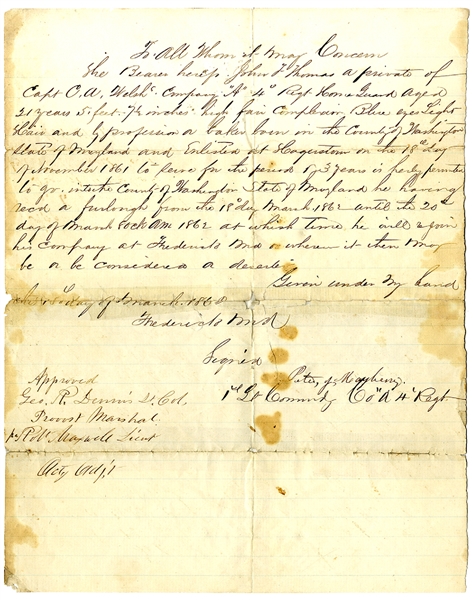 To All Whom it May Concern
The Bearer hereof John F Thomas a private of
Capt O, A, Welsh Company "A" 4" Regt Home Guard Aged
21 years 5 feet 7½ inches high fair complexion Blue eyes Light
Hair and by profession a baker born in the County of Washington
State of Maryland and Enlisted at Hagerstown on the 18" day
of November 1861 to serve for the period of 3 years is hereby permitted
to go into the County of Washington State of Maryland he having
recd a furlough from the 18" day March 1862 until the 20"
day of March 1862 at which time he will rejoin
his company at Frederick Md or wherever it then may
be or be considered a deserter
Given under My hand
this 18" day of March 186
Frederick Md
Signed
Peter J Mayberry
1st Lt Commndg Co "A" 4" Regt
Approved
Geo, R, Dennis Lt, Col,
Provost Marshal
pr Robt Maxwell Lieut
Actg Adj't